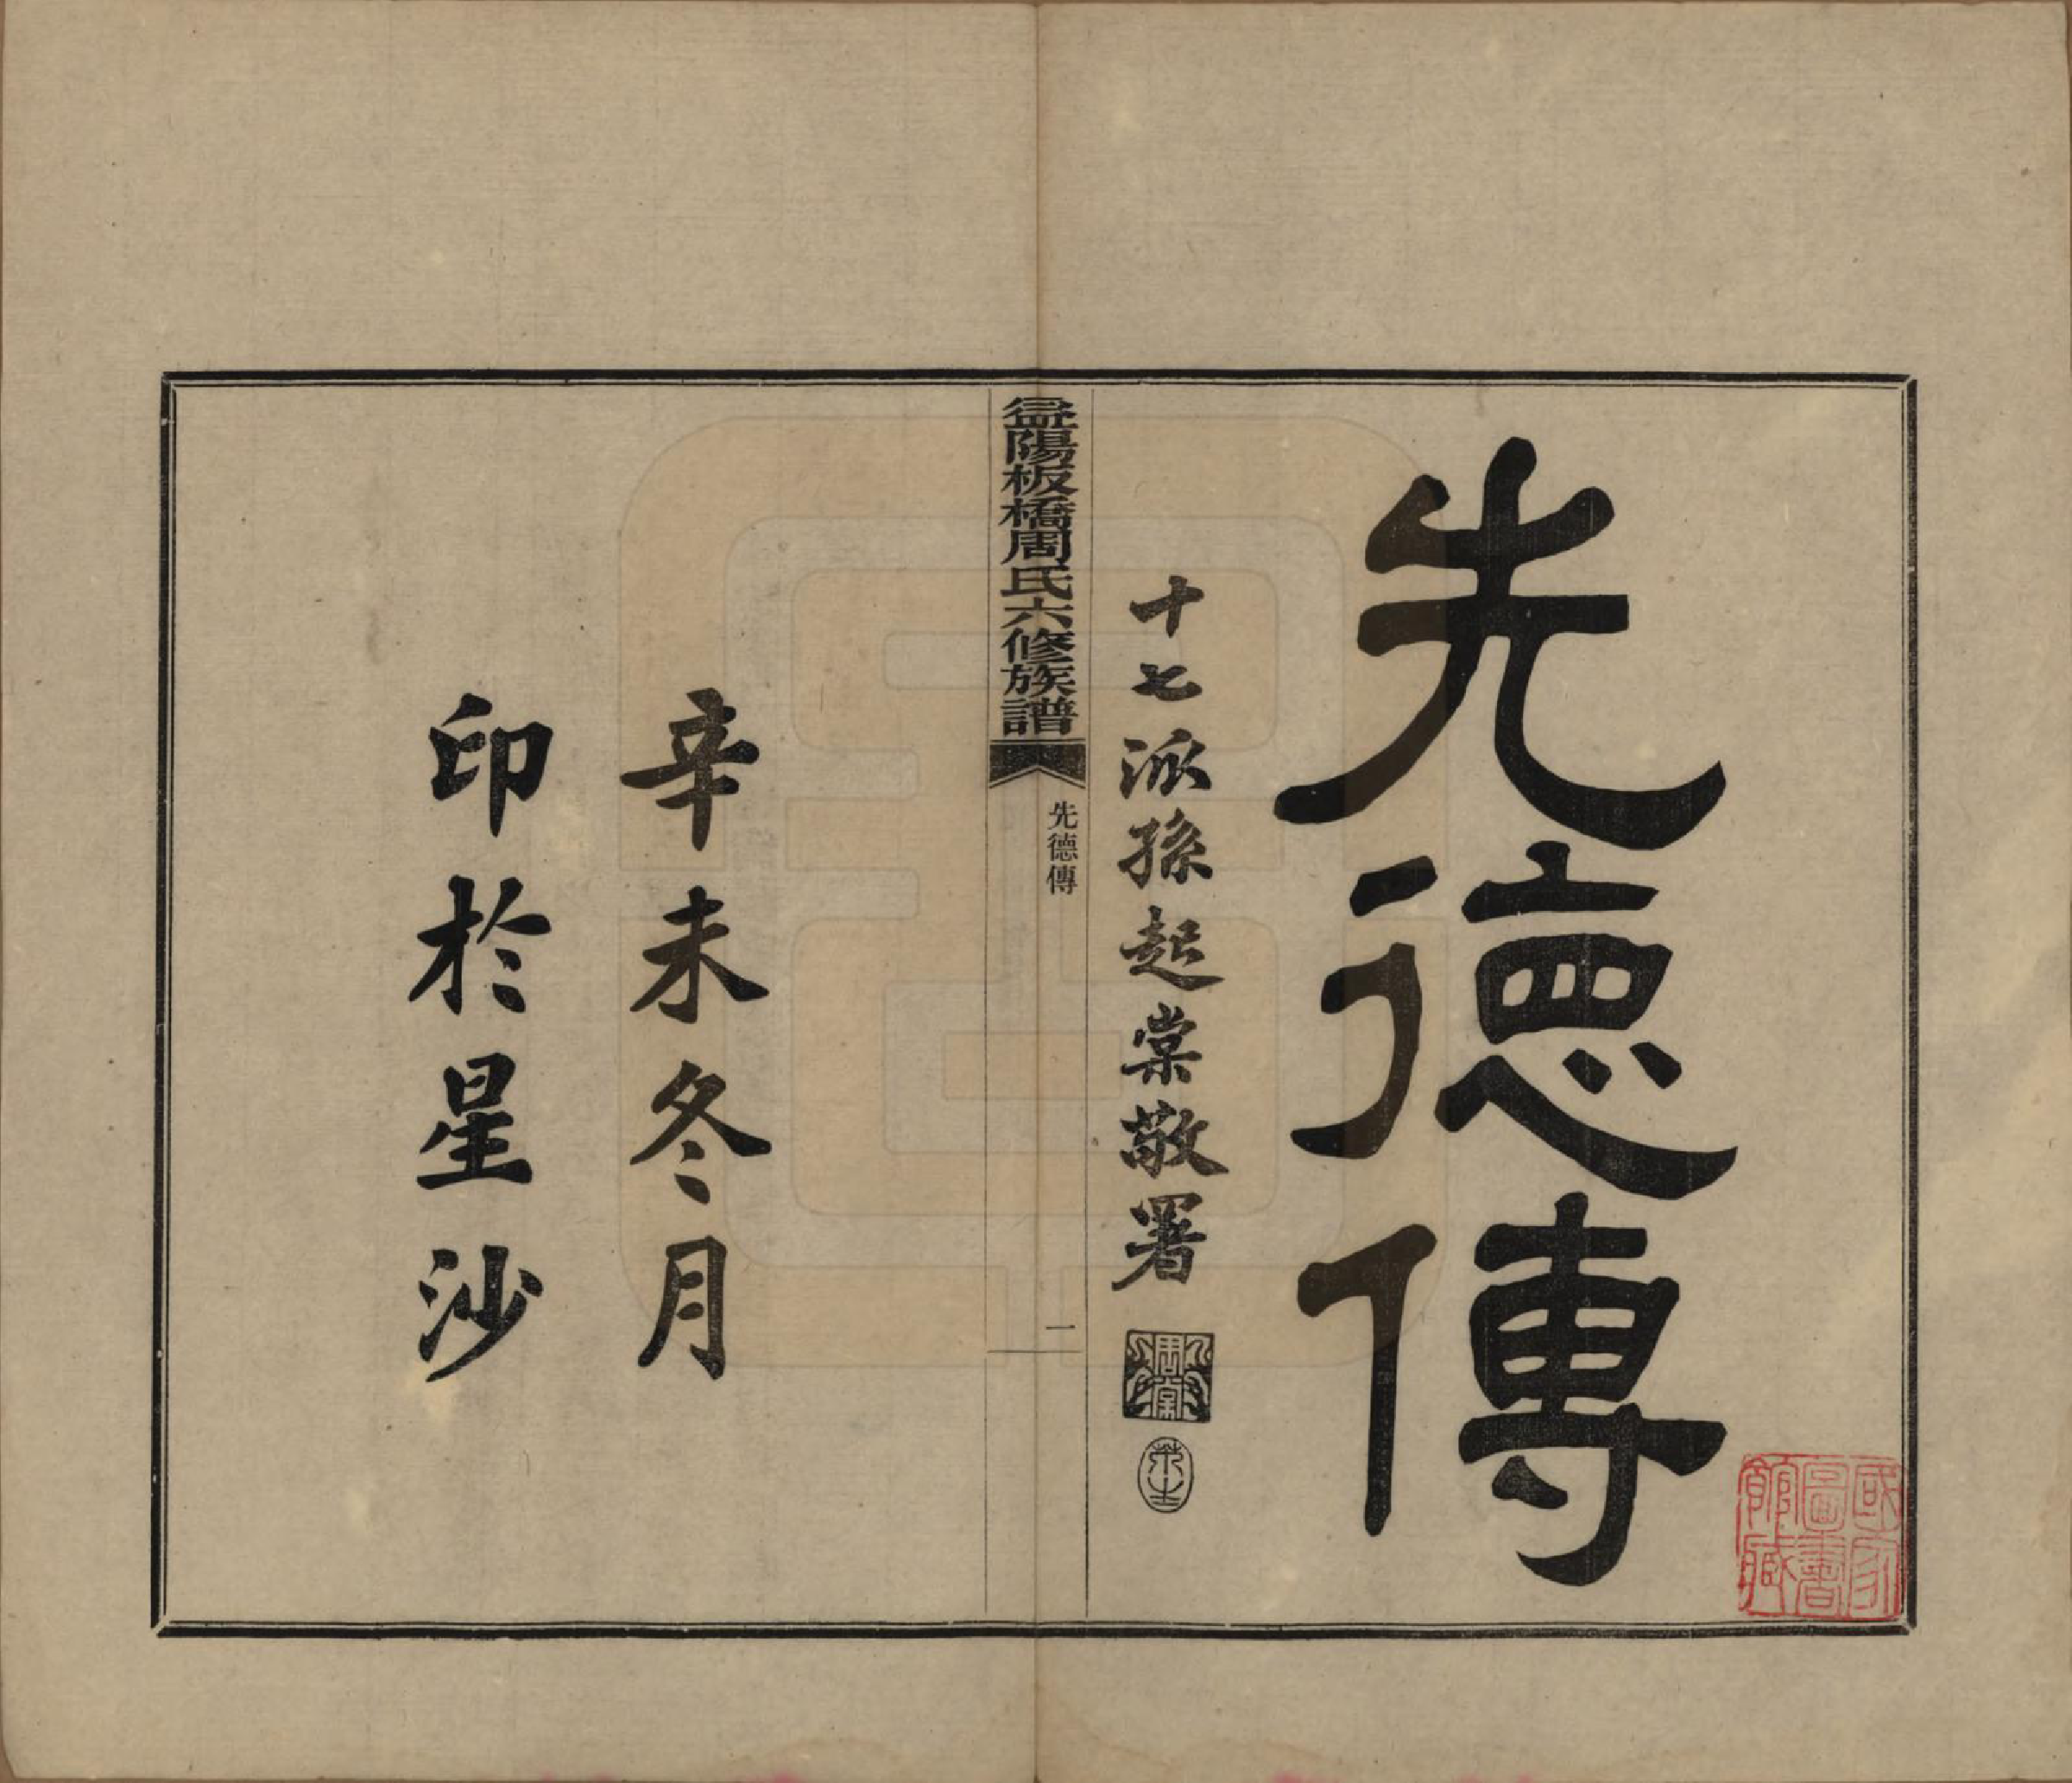 先德傳
十七派孫起棠敬署
益陽板橋周氏六修族譜
先德傳
一
辛未冬月
印於星沙
國家圖書館藏